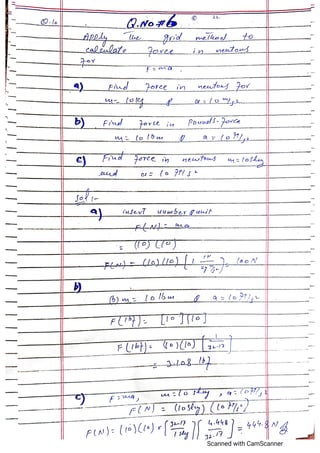 Q.No #6
Apply the grid method to
calculate Force in newtons
For
F = ma
a) Find Force in newtons For
m = 10 kg & a = 10 m/s²
b) Find Force in Pounds-Force
m = 10 lbm & a = 10 ft/s²
c) Find Force in newtons m = 10 slug
and a = 10 ft/s²
Sol:-
a) insert number & unit
F(N) = ma
= (10) (10)
F(N) = (10)(10) = 100 N
b)
(b) m = 10 lbm & a = 10 ft/s²
F(lbf) = [10][10]
F(lbf) = (10)(10) [1/32.17]
= 3.108 lbf
c) F = ma, m = 10 slug, a = 10 ft/s²
F(N) = (10 slug) (10 ft/s²)
F(N) = (10)(10) × [32.17/1 slug] [4.448/32.17] = 444.8 N
Scanned with CamScanner